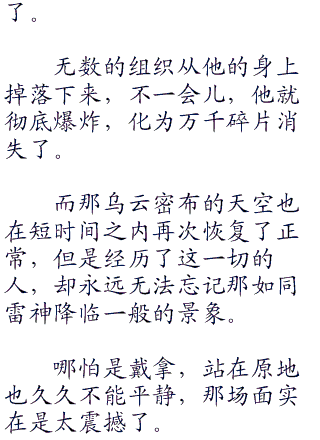 了。
无数的组织从他的身上
掉落下来，不一会儿，他就
彻底爆炸，化为万千碎片消
失了。
而那乌云密布的天空也
在短时间之内再次恢复了正
常，但是经历了这一切的
人，却永远无法忘记那如同
雷神降临一般的景象。
哪怕是戴拿，站在原地
也久久不能平静，那场面实
在是太震撼了。